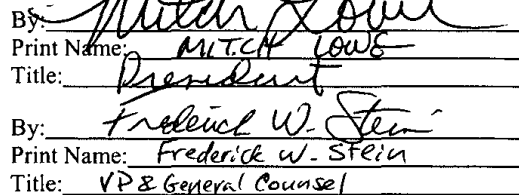 By: Mitch Lowe
Print Name: MITCH LOWE
Title: President
By: Frederick W. Stein
Print Name: Frederick W. Stein
Title: VP & General Counsel